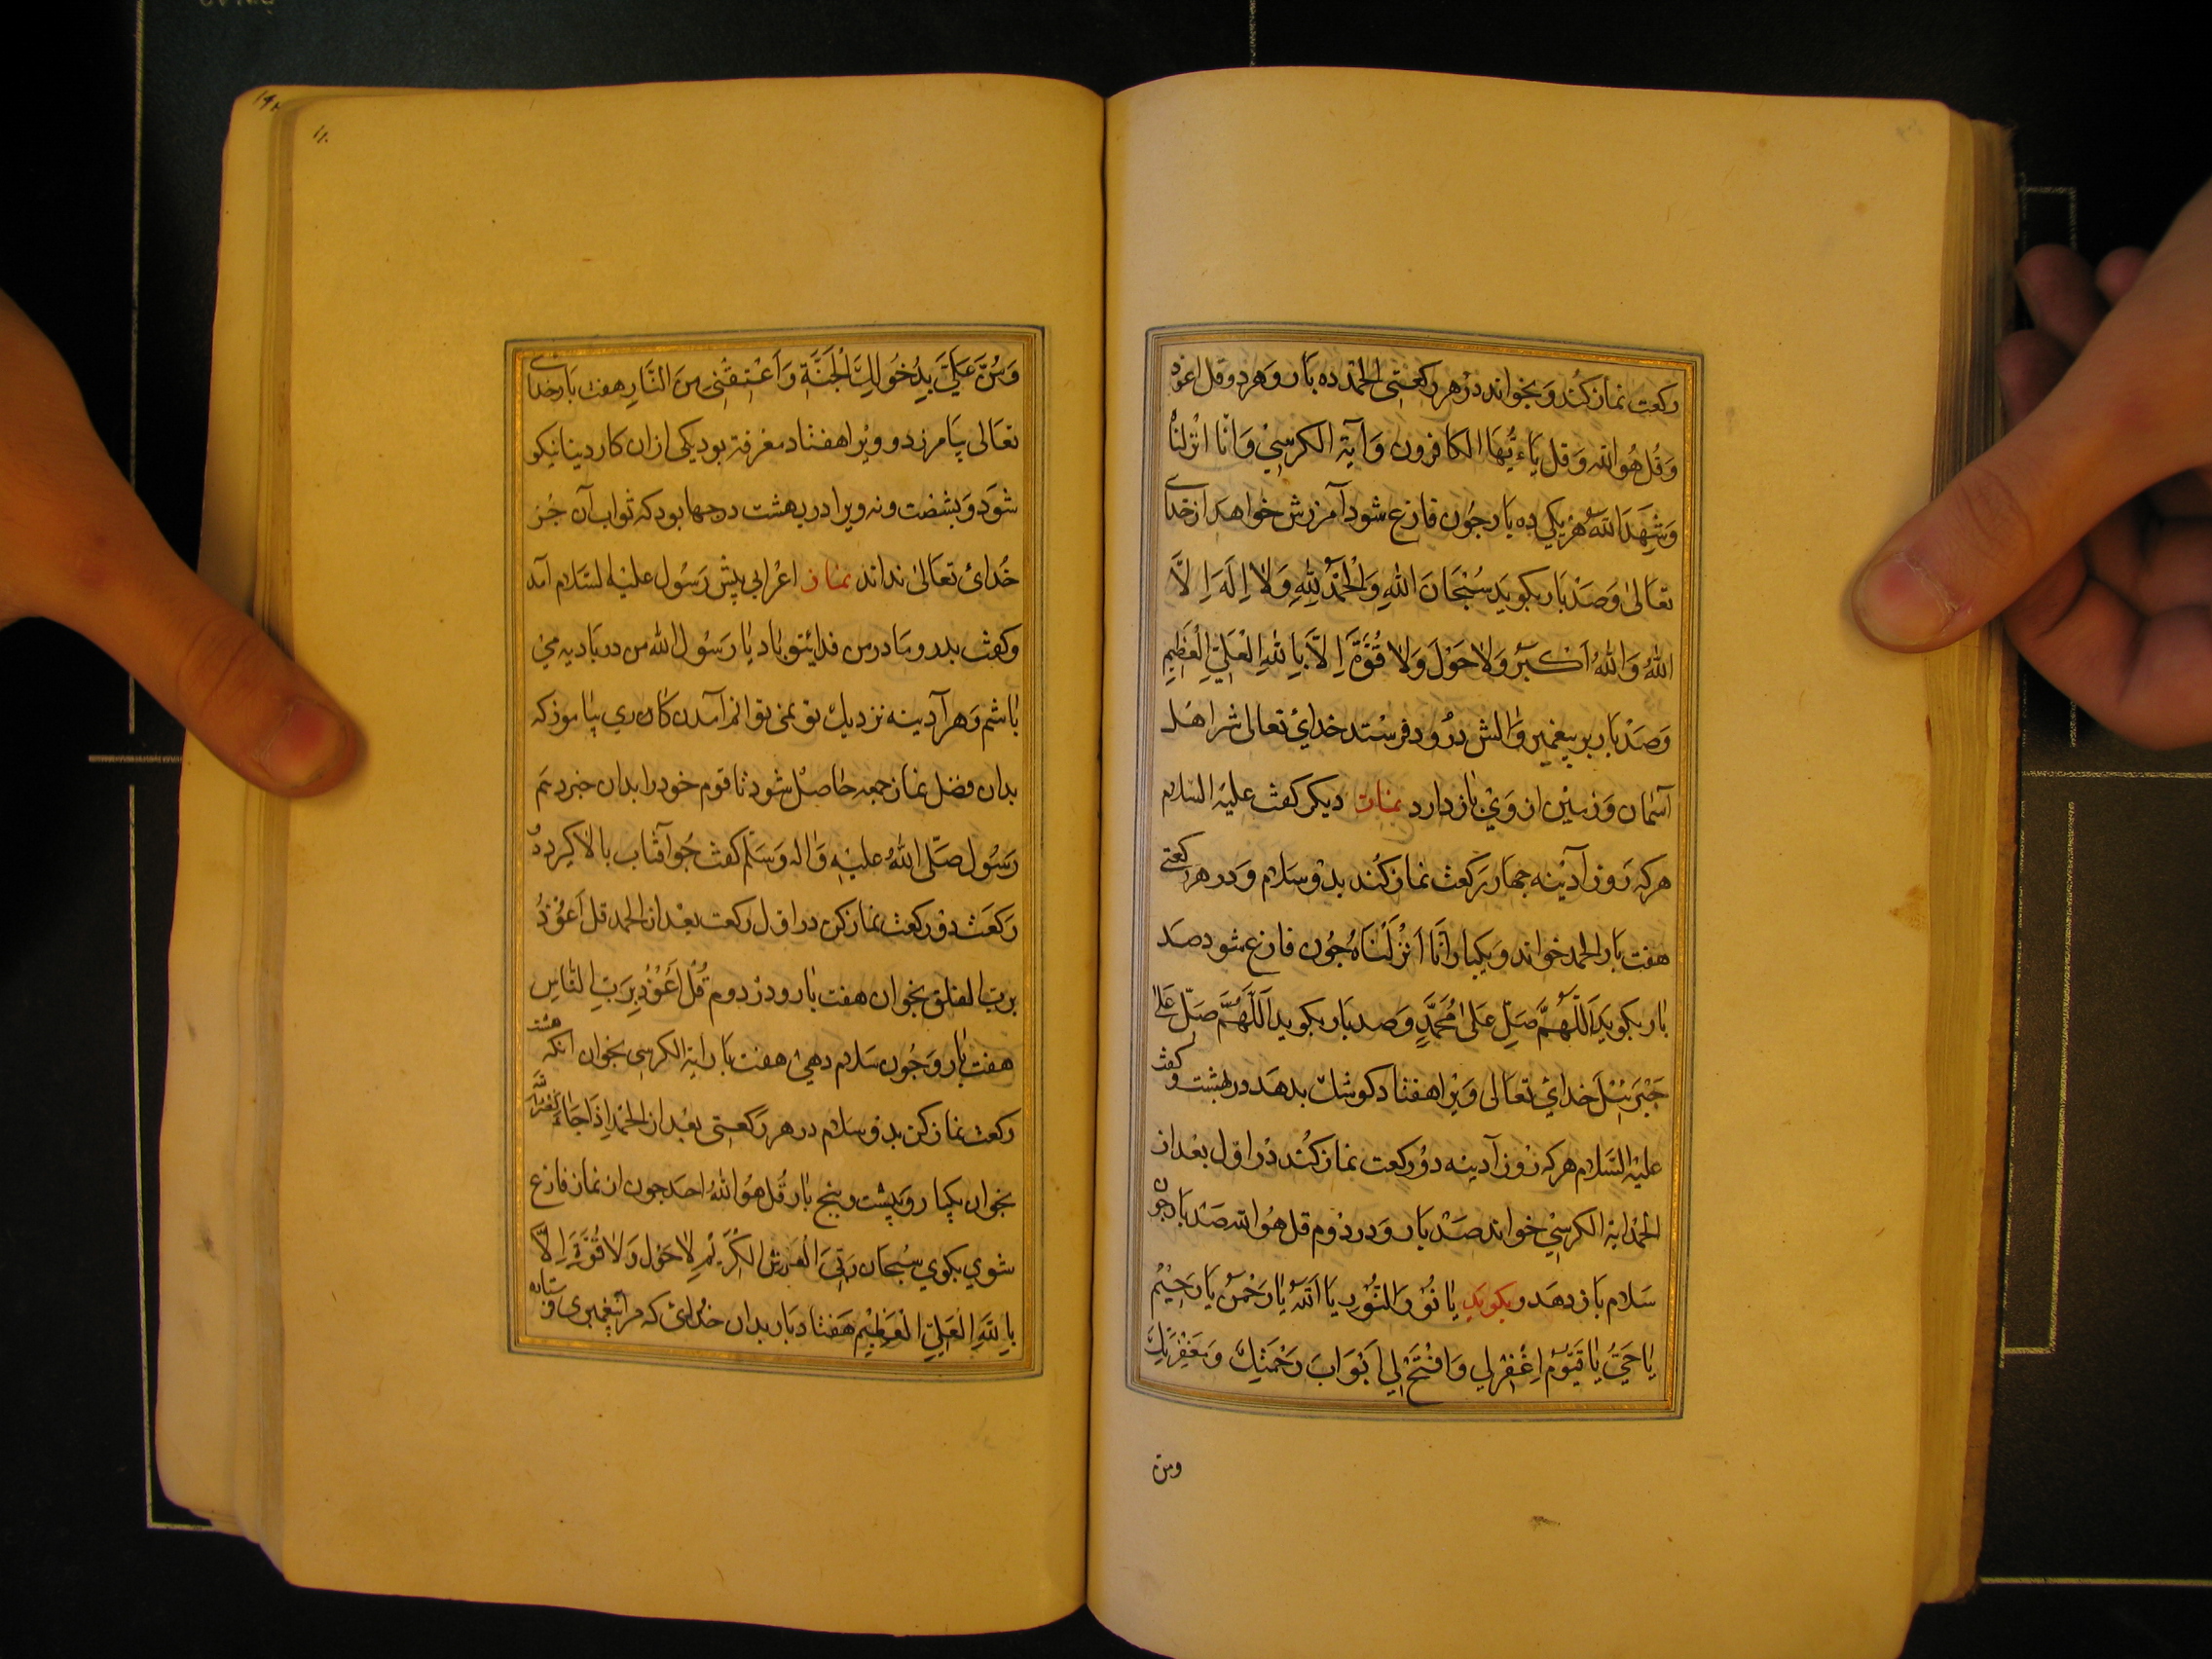 ركعت نماز كند و بخواند در هر ركعتى الحمد ده بار و هر دو قل اعوذ
وَقُل هُوَ الله وَقل يَاءَيُّهَا الكافرون وَآية الكرسِيْ وَانّا انْزلناهُ
وَشَهِدَ الله هر يكى ده بار جُون فارغ شود آمرزش خواهد از خداى
تعَالىٰ وَصَدْ بَار بكويد سُبْحَانَ اللهِ وَالْحَمْدُ لِلّهِ وَلاٰ اِلَهَ اِلاَّ
اللهُ وَاللهُ اَكْبَرُ وَلاٰ حَوْلَ وَلاٰ قُوَّةَ اِلاَّ بِاللهِ الْعَلِيِّ الْعَظِيمِ
وَصَدْ بَار بر پيغمبر وَالش دُرُود فرسْتد خداىْ تعالى شر اهل
آسْمان وَ زمين از وَىْ باز دارد نماز ديكر كفت عليه السّلام
هر كه رَوز آدينه جهار ركعت نماز كُند بدوْ سَلام وَ در هر ركعتى
هفت بَار الحمد خواند وَ يكبار انَّا اَنْزَلْنَاهُ جُون فارغ شود صَد
بار بكويَد اَللّهُمَّ صَلِّ عَلىٰ مُحَمَّدٍ وَ صد بَار بكويد اَللَّهُمَّ صَلّ عَلىٰ
جَبْرَئِيْلَ خداىْ تعَالى وَيْرا هفتاد كوشك بدهَد در بهشت و كفت
عليْه السَّلام هركه رَوز آدينه دوْ ركعت نماز كُند دَرْ اوّل بعْد از
الحَمْد اية الكرسِيْ خواند صَدْ بَار وَ در دوْم قل هُو الله صَدْ بَار جون
سَلام بَاز دهَد و بكويَد يَا نُوْرَ النُّوْرِ يَا اَللهُ يَا رَحْمٰنُ يَا رَحِيْمُ
يَا حَىُّ يَا قَيّوْمُ اِغْفِرْلي وَافْتَحْ لِي اَبْوَابَ رَحْمَتِكَ وَمَغْفِرَتِكَ
ومن
١١٠
وَمُنَّ عَلَيَّ بِدُخُولِي الْجَنَّةِ وَ اَعْتِقْنِي مِنَ النَّارِ هفت بَار خداى
تعَالى بيَامرزدو وَيْرا هفتاد مغفرة بود يكى ازان كار دينا نيكو
شوَد وَ بشصت و نه ويرا در بهشت درجها بود كه ثواب آن جُز
خُداىْ تعَالىٰ نداند نماز اعْرابي پيش رَسُول عليْه السَّلام آمد
وكفت بدر و مَادر من فداىٔ تو بَاد يَا رَسُول الله من در بَاديه مي
بَاشم وَ هر آدينه نزديك تو نمى توانم آمدن كارى بيَاموز كه
بدان فضل نماز جمعه حَاصِل شود تا قوم خود را بدان خبر دهَم
رَسُول صَلّى اللهُ عليْهِ وَاله وَسَلّم كفت جُو آفتاب بالا كيرد دهْ
رَكعَت دوْ ركعت نماز كن در اوّل ركعت بعْد از الحمد قل اَعُوْذُ
برب الفلق بخوان هفت بَار و درْ دوم قُلْ اَعُوْذُ بِرَبِّ النَّاسِ
هفت بار وَ جُون سَلام دهي هفت بَار اية الكرسى بخوان انكه هشت
ركعت نماز كن بدوْ سَلام در هر ركعتى بعْد از الحمد اِذَا جَاءَ نَصْرُ الله
بخوان يكبار و بيست و پنج بَار قُل هُوَ اللهُ احَد جون از نماز فارغ
شوي بكوي سُبْحَان رَبّي رَبِّ الْعَرْشِ الْكَرِيْمِ لاٰحَوْلَ وَلاٰ قُوَّةَ اِلاَّ
بِاللّهِ الْعَلِيِّ الْعَظِيْمِ هَفتاد بَار بدان خداىْ كه مرا پيغمبرى فرستاده